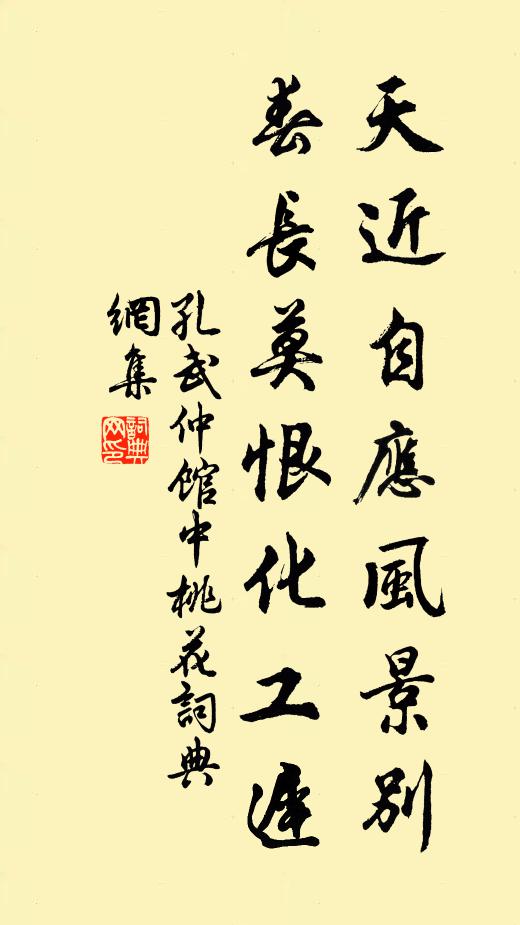 天近自應風景別
春長莫恨化工遲
孔武仲館中桃花詞典
網集
詞典網印